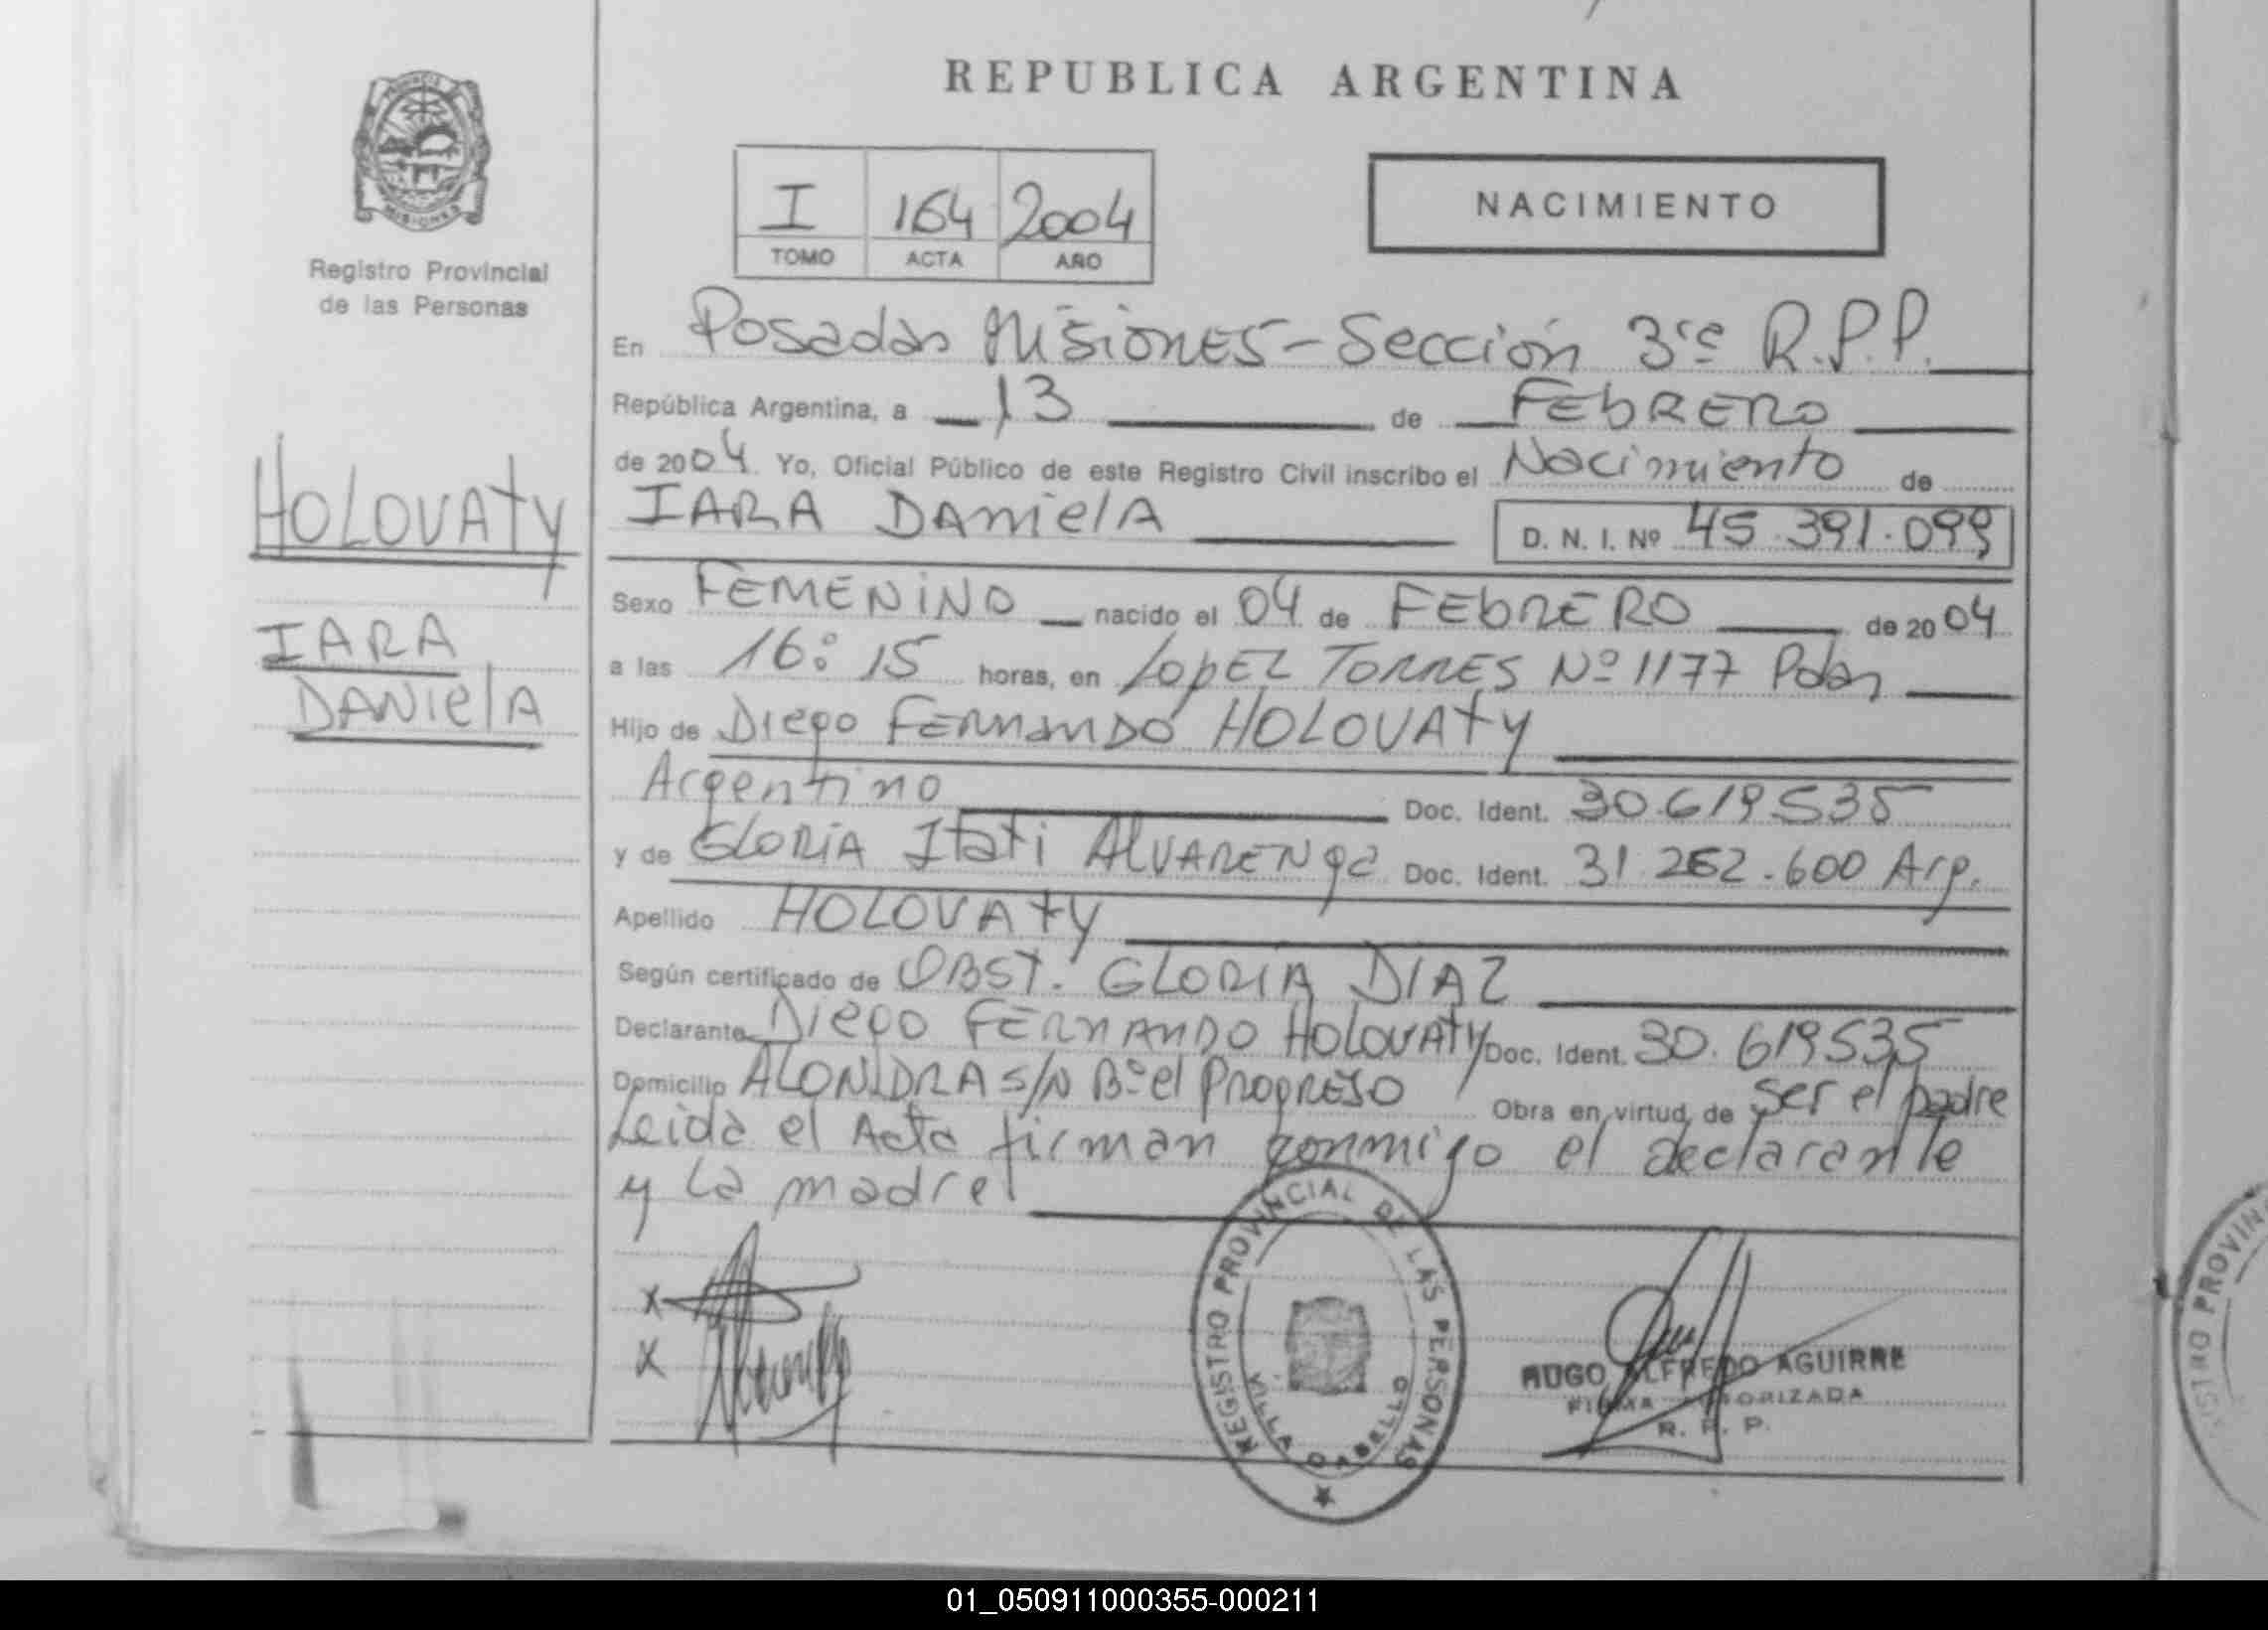 REPUBLICA ARGENTINA
I 164 2004
TOMO ACTA AÑO
NACIMIENTO
PROVINCIA
MISIONES
Registro Provincial
de las Personas
HOLOVATY
IARA
DANIELA
En Posadas Misiones - Sección 3ra R.P.P.
República Argentina, a 13 de FEBRERO
de 2004. Yo, Oficial Público de este Registro Civil inscribo el Nacimiento de
IARA DANIELA D. N. I. Nº 45.391.099
Sexo FEMENINO nacido el 04 de FEBRERO de 2004
a las 16:15 horas, en LOPEZ TORRES Nº 1177 Pdas
Hijo de Diego FERNANDO HOLOVATY
Argentino Doc. Ident. 30.619535
y de GLORIA Itati ALVARENga Doc. Ident. 31.262.600 Arg.
Apellido HOLOVATY
Según certificado de OBST. GLORIA DIAZ
Declarante Diego FERNANDO HOLOVATY Doc. Ident. 30.619535
Domicilio ALONDRA S/N Bº el PROGRESO Obra en virtud de ser el padre
Leida el Acta firman conmigo el declarante
y la madre
X
X
REGISTRO PROVINCIAL DE LAS PERSONAS
VILLA CABELLO
HUGO ALFREDO AGUIRRE
FIRMA AUTORIZADA
R. P. P.
01_050911000355-000211